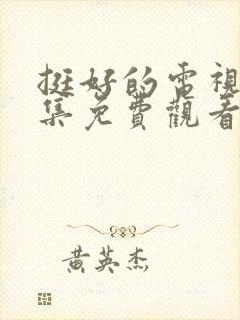 挺好的電視
集免費觀看
黄英杰